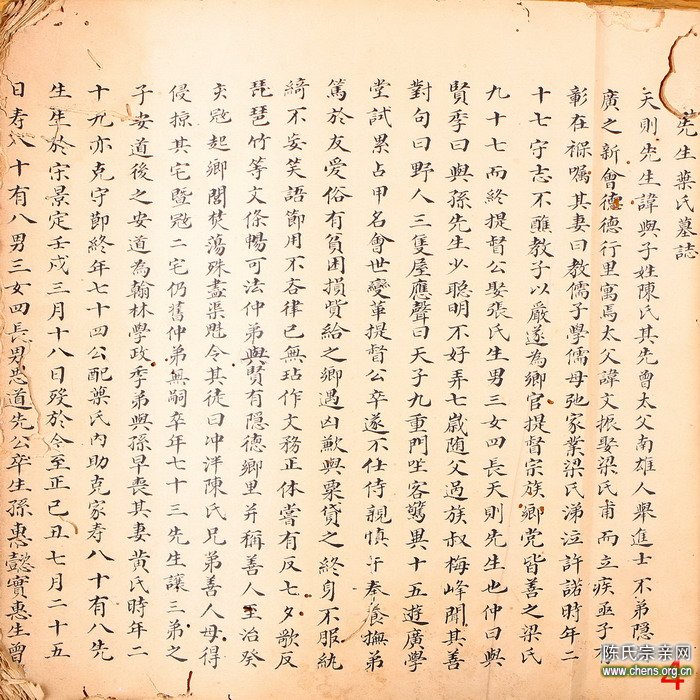 先生葉氏墓誌
天則先生諱與子姓陳氏其先曾太父南雄人舉進士不弟隱
廣之新會德德行里寓焉太父諱文振娶梁氏甫而立疾亟子才
彰在襁嘱其妻曰教儒子學儒母弛家業梁氏涕泣許諾時年二
十七守志不醮教子以嚴遂為鄉官提督宗族鄉党皆善之梁氏
九十七而終提督公娶張氏生男三女四長天則先生也仲曰與
賢季曰與孫先生少聰明不好弄七歲随父過族叔梅峰閗其善
對句曰野人三隻屋應聲曰天子九重門坐客驚異十五遊廣學
堂試累占甲名會世變革提督公卒遂不仕侍親慎午奉養撫弟
篤於友愛俗有貧困損貲給之鄉遇凶歉與粟貸之終身不服紈
綺不妄笑語節用不吝律已無玷作文務正体嘗有反七夕歌反
琵琶竹等文條暢可法仲弟與賢有隠德鄉里并稱善人至治癸
亥冦起鄉閭焚蕩殊盡渠魁令其徒曰冲泮陳氏兄弟善人毋得
侵掠其宅暨冦二宅仍舊仲弟無嗣卒年七十三先生讓三弟之
子安道後之安道為翰林學政季弟與孫早喪其妻黄氏時年二
十九亦克守節終年七十四公配葉氏內助克家寿八十有八先
生生於宋景定壬戍三月十八日歿於今至正己丑七月二十五
日寿八十有八男三女四長男思道先公卒生孫惠懿實惠生曾
陈氏宗亲网
www.chens.org.cn
4